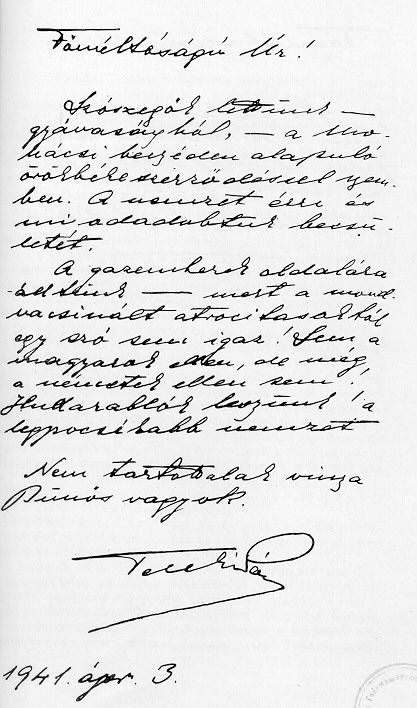 Főméltóságú Úr!
Szószegők lettünk –
gyávaságból, – a mo-
hácsi beszéden alapuló
örökbékeszerződéssel szem-
ben. A nemzet érzi és
mi odadobtuk becsü-
letét.
A gazemberek oldalára
álltunk – mert a mond-
vacsinált atrocitásokból
egy szó sem igaz! Sem a
magyarok ellen, de még
a németek ellen sem!
Hullarablók leszünk! a
legpocsékabb nemzet
Nem tartottalak vissza
Bűnös vagyok.
Teleki Pál
1941. ápr. 3.